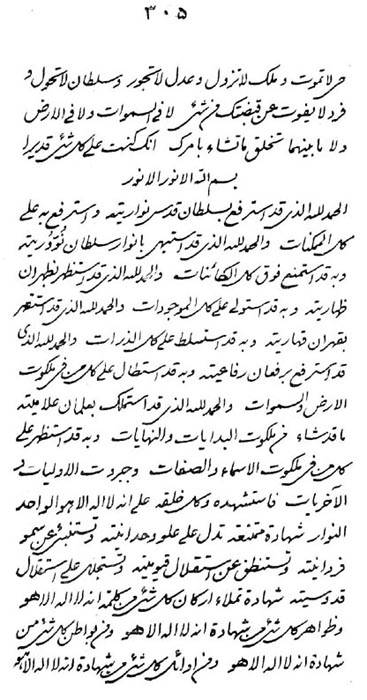 ۳۰۵
حی لا تموت و ملک لا تزول و عدل لا تجور و سلطان لا تحول و
فرد لا یفوت عن قبضتک من شیئ لا فی السموات و لا فی الارض
و لا ما بینهما تخلق ما تشاء بامرک انک کنت علی کل شیئ قدیرا
بسم الله الانور الانور
الحمد لله الذی قد استرفع بسلطان قدس نواریته و استرفع به علی
کل الممکنات والحمد لله الذی قد استبهی بانوار سلطان نووریته
و به قد استمنع فوق کل الکائنات والحمد لله الذی قد استظهر بظهران
ظهاریته و به قد استولی علی کل الموجودات والحمد لله الذی قد استقهر
بقهران قهاریته و به قد استسلط علی کل الذرات والحمد لله الذی
قد استرفع برفعان رفاعیته و به قد استطال علی کل من فی ملکوت
الارض والسموات والحمد لله الذی قد استملک بعلمان علامیته
ما قد شاء من ملکوت البدایات والنهایات و به قد استظهر علی
کل من فی ملکوت الاسماء والصفات و جردت الاولیات و
الآخریات فاستشهده و کل خلقه علی انه لا اله الا هو الواحد
النوار شهادة ممتنعه تدل علی علو وحدانیته و تستنبئ عن سمو
فردانیته و تستنطق عن استقلال قیومیته و تستجلی علی استقلال
قدوسیته شهادة تملاء ارکان کل شیئ من کلمة انه لا اله الا هو
و ظواهر کل شیئ من شهادة انه لا اله الا هو و من بواطن کل شیئ من
شهادة انه لا اله الا هو و من اوائل کل شیئ من شهادة انه لا اله الا هو